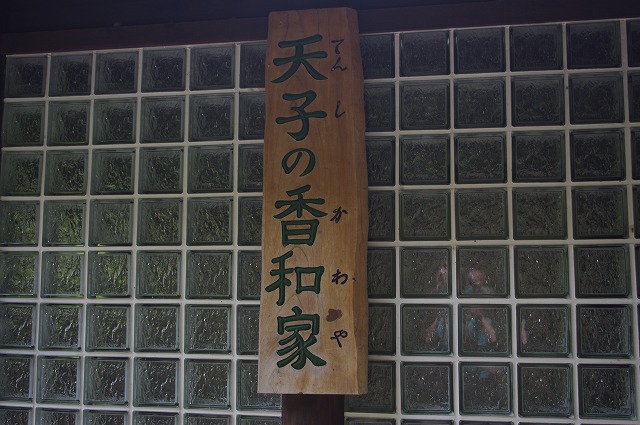 天子の香和家
てんし かわや